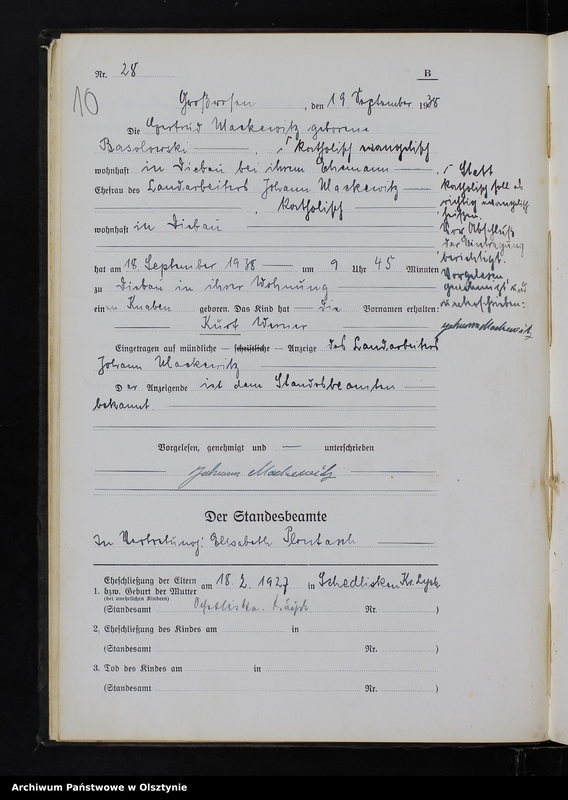 Nr. 28
B
10
Großrosen, den 19. September 1938
Die Gertrud Mackewitz geborene
Basolowski, Γ katholisch evangelisch
wohnhaft in Diebau bei ihrem Ehemann,
Ehefrau des Landarbeiters Johann Mackewitz
, katholisch
wohnhaft in Diebau
hat am 18. September 1938 um 9 Uhr 45 Minuten
zu Diebau in ihrer Wohnung
einen Knaben geboren. Das Kind hat die Vornamen erhalten:
Kurt Werner
Γ Statt
katholisch soll es
richtig evangelisch
heißen.
Vor Abschluß
der Eintragung
berichtigt.
Vorgelesen
genehmigt und
unterschrieben:
Johann Mackewitz
Eingetragen auf mündliche — schriftliche — Anzeige des Landarbeiters
Johann Mackewitz
Der Anzeigende ist dem Standesbeamten
bekannt
Vorgelesen, genehmigt und — unterschrieben
Johann Mackewitz
Der Standesbeamte
In Vertretung: Elisabeth
Eheschließung der Eltern am 18. 2. 1927 in Schedlisken Kr. Lyck
1. bzw. Geburt der Mutter
(bei unehelichen Kindern)
(Standesamt Nr. )
2. Eheschließung des Kindes am in
(Standesamt Nr. )
3. Tod des Kindes am in
(Standesamt Nr. )
Archiwum Państwowe w Olsztynie